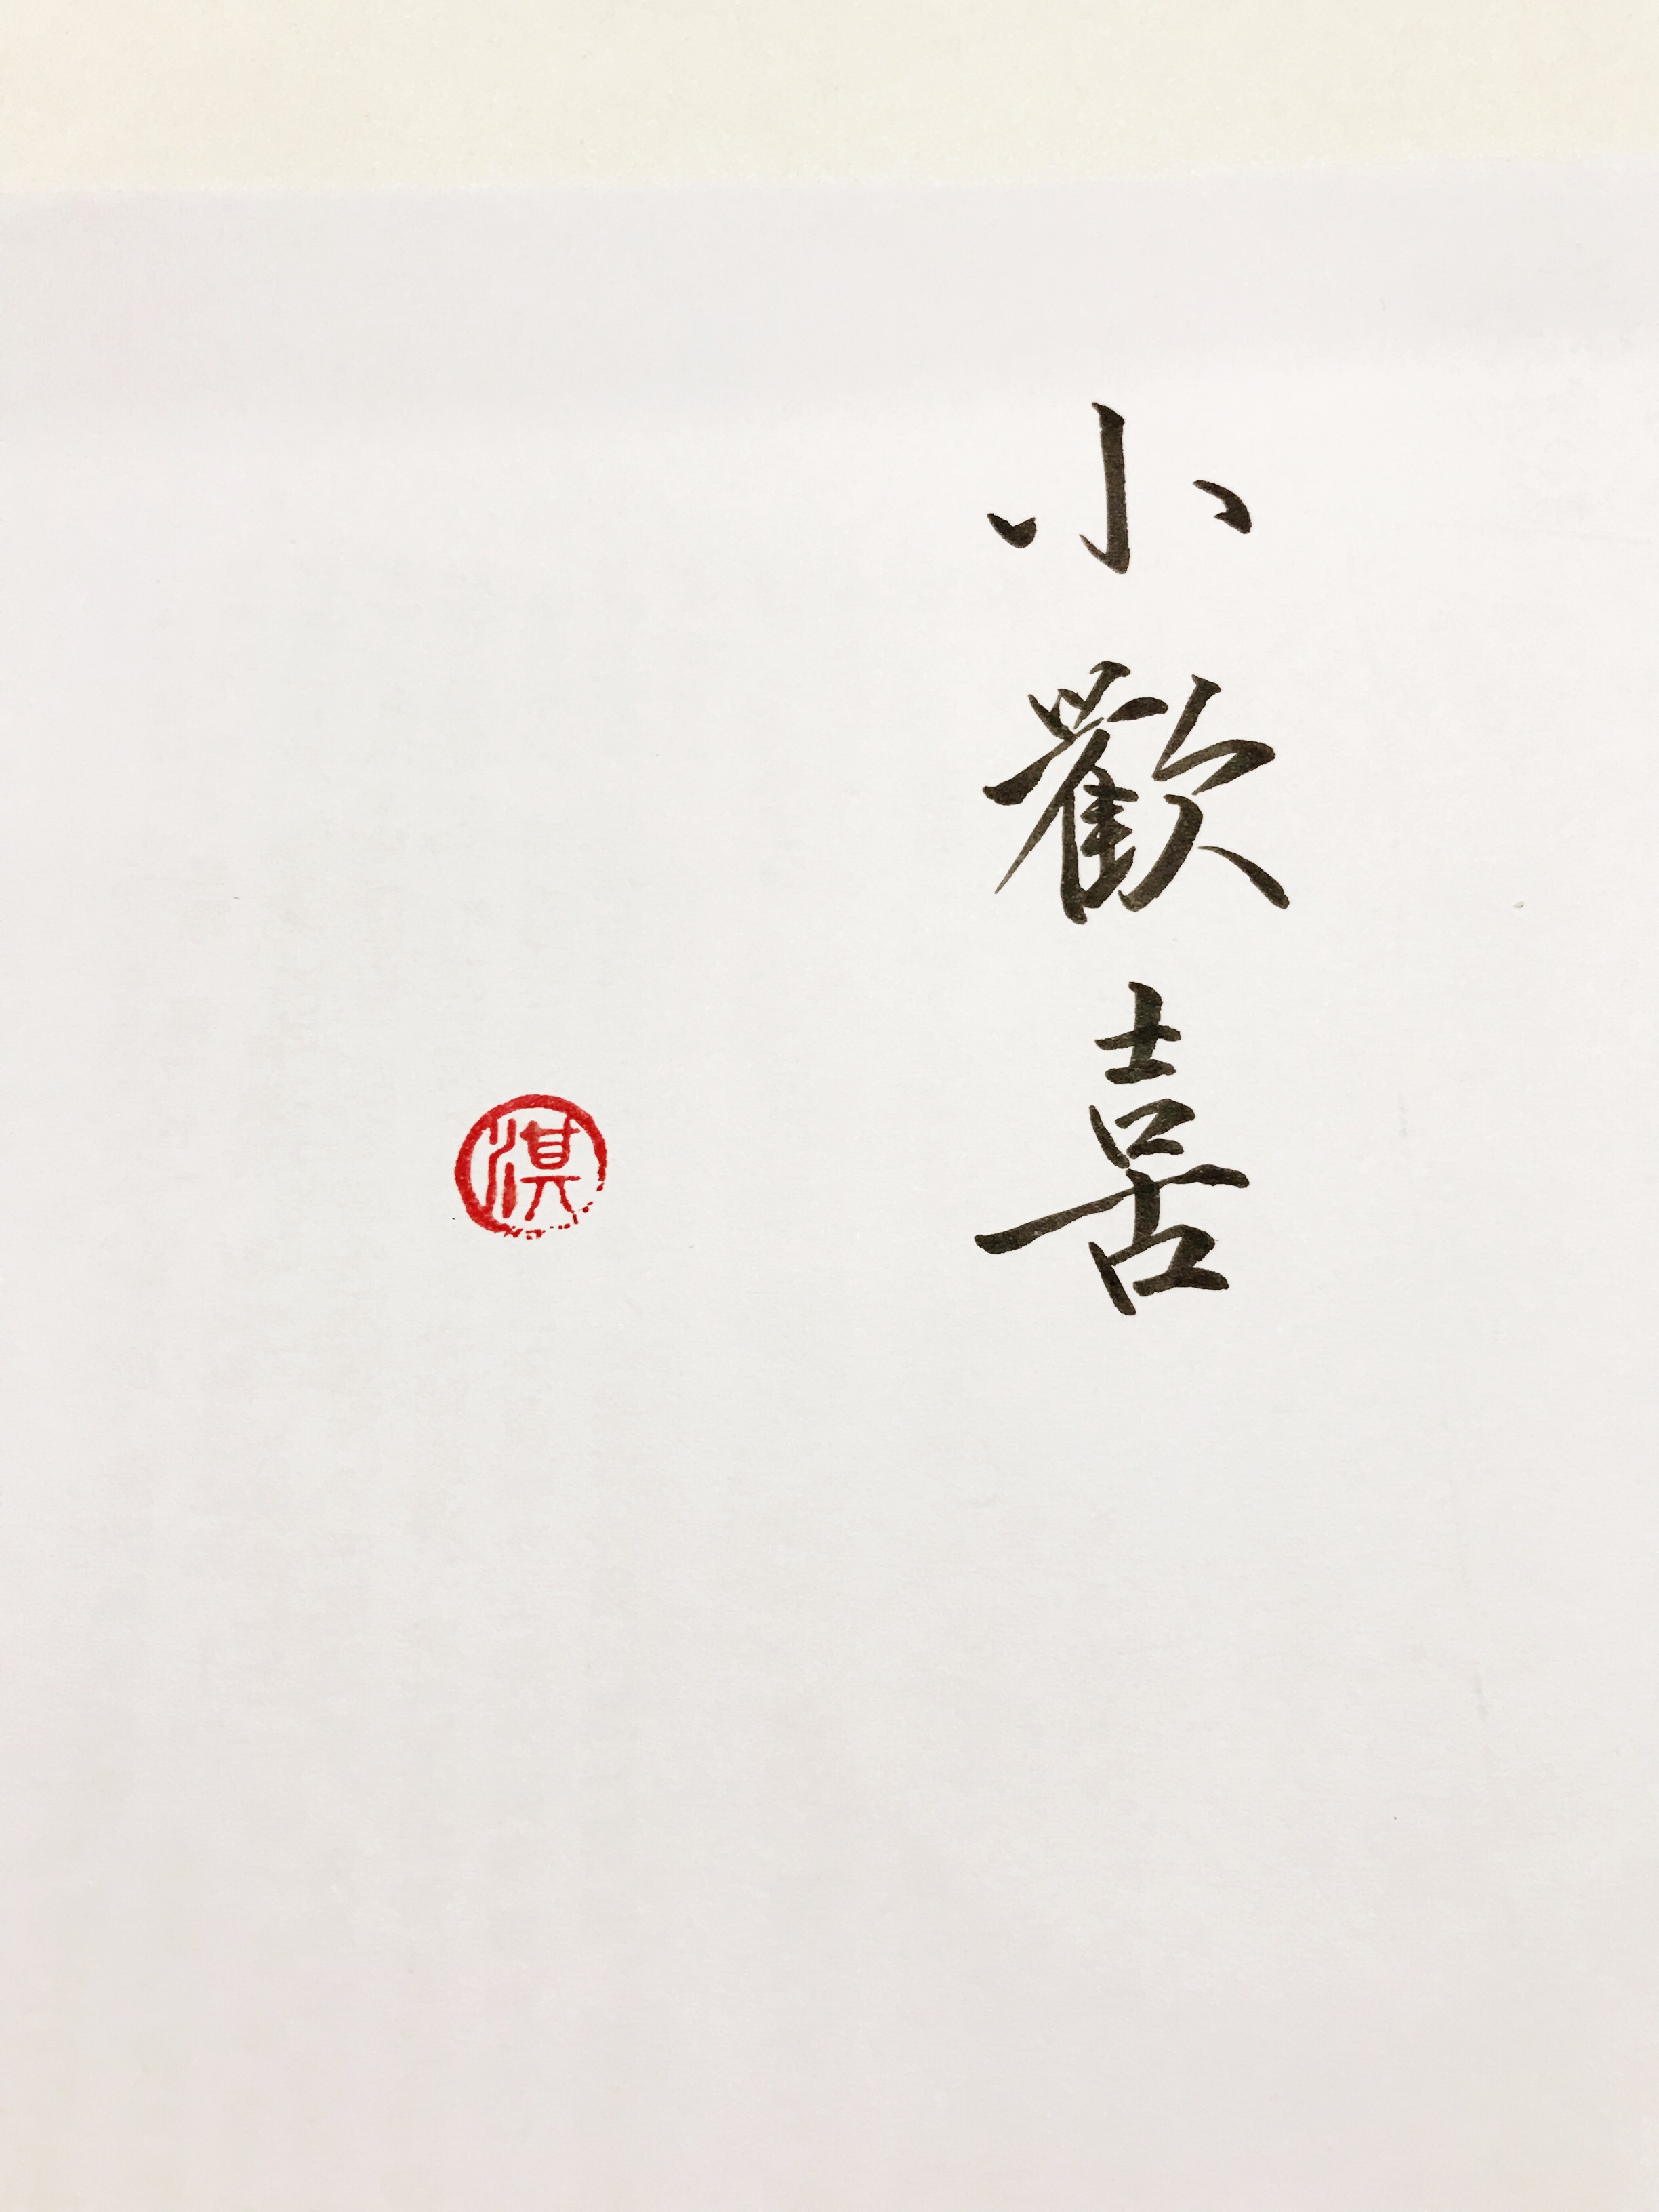 小歡喜
淇